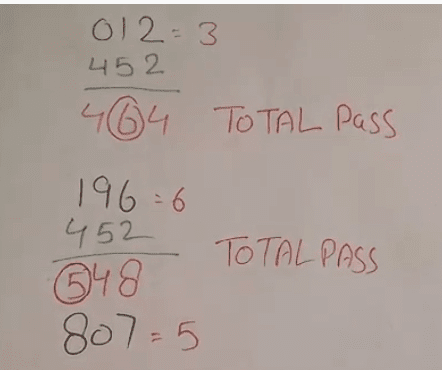 012 = 3
452
464 TOTAL PASS
196 = 6
452
548 TOTAL PASS
807 = 5